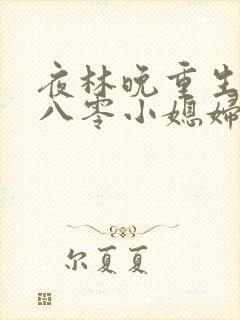 夜林晚重生
八零小媳妇
尔夏夏